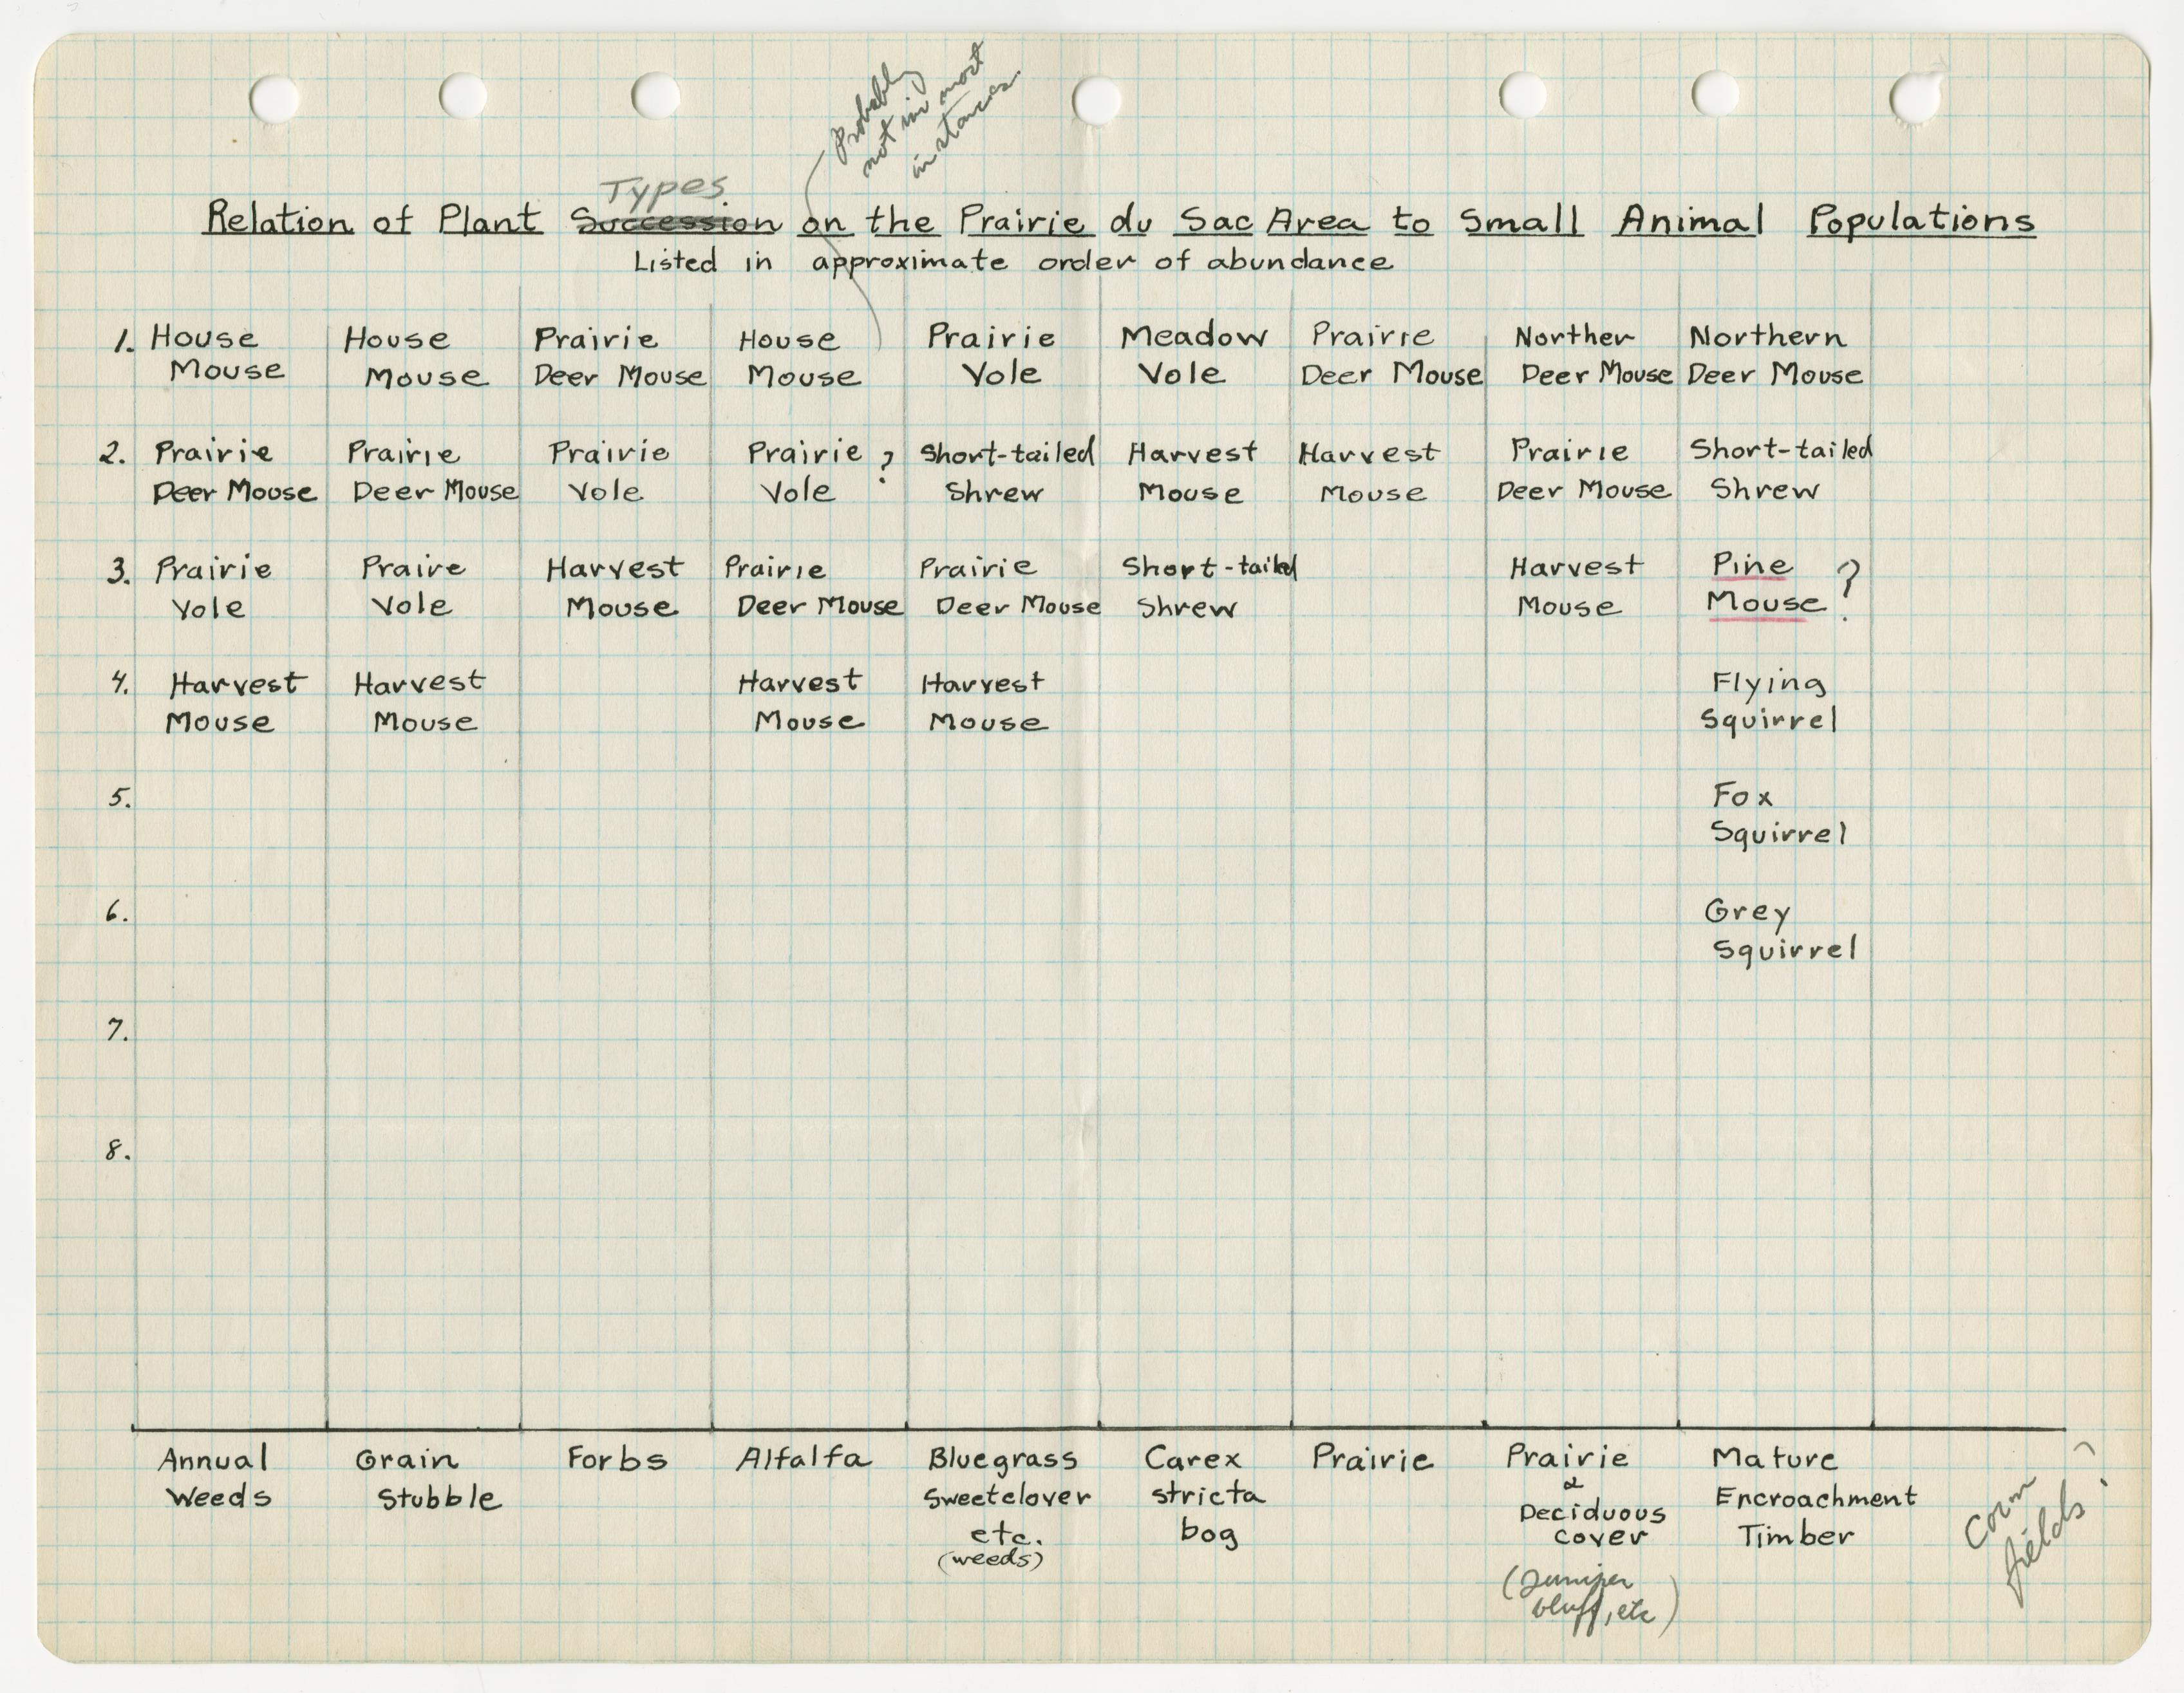 Probably
not in most
instances.
Types
Relation of Plant Succession on the Prairie du Sac Area to Small Animal Populations
Listed in approximate order of abundance
1. House House Prairie House Prairie Meadow Prairie Norther Northern
Mouse Mouse Deer Mouse Mouse Vole Vole Deer Mouse Deer Mouse Deer Mouse
2. Prairie Prairie Prairie Prairie ? Short-tailed Harvest Harvest Prairie Short-tailed
Deer Mouse Deer Mouse Vole Vole Shrew Mouse Mouse Deer Mouse Shrew
3. Prairie Praire Harvest Prairie Prairie Short-tailed Harvest Pine ?
Vole Vole Mouse Deer Mouse Deer Mouse Shrew Mouse Mouse
4. Harvest Harvest Harvest Harvest Flying
Mouse Mouse Mouse Mouse Squirrel
5. Fox
Squirrel
6. Grey
Squirrel
7.
8.
Annual Grain Forbs Alfalfa Bluegrass Carex Prairie Prairie Mature
Weeds Stubble Sweetclover stricta & Encroachment
etc. bog Deciduous Timber
(weeds) cover
(Juniper
bluff, etc)
Corn
fields?